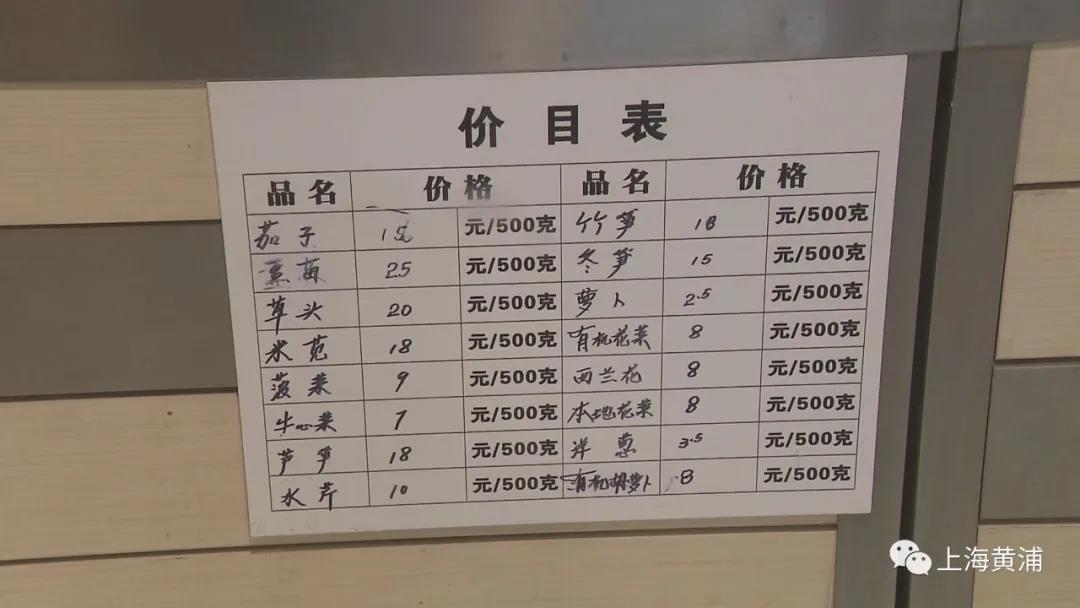 价目表
品名 价格 品名 价格
茄子 15 元/500克 竹笋 18 元/500克
25 元/500克 冬笋 15 元/500克
草头 20 元/500克 萝卜 2.5 元/500克
米苋 18 元/500克 有机花菜 8 元/500克
菠菜 9 元/500克 西兰花 8 元/500克
牛心菜 7 元/500克 本地花菜 8 元/500克
芦笋 18 元/500克 洋葱 3.5 元/500克
水芹 10 元/500克 有机胡萝卜 8 元/500克
上海黄浦